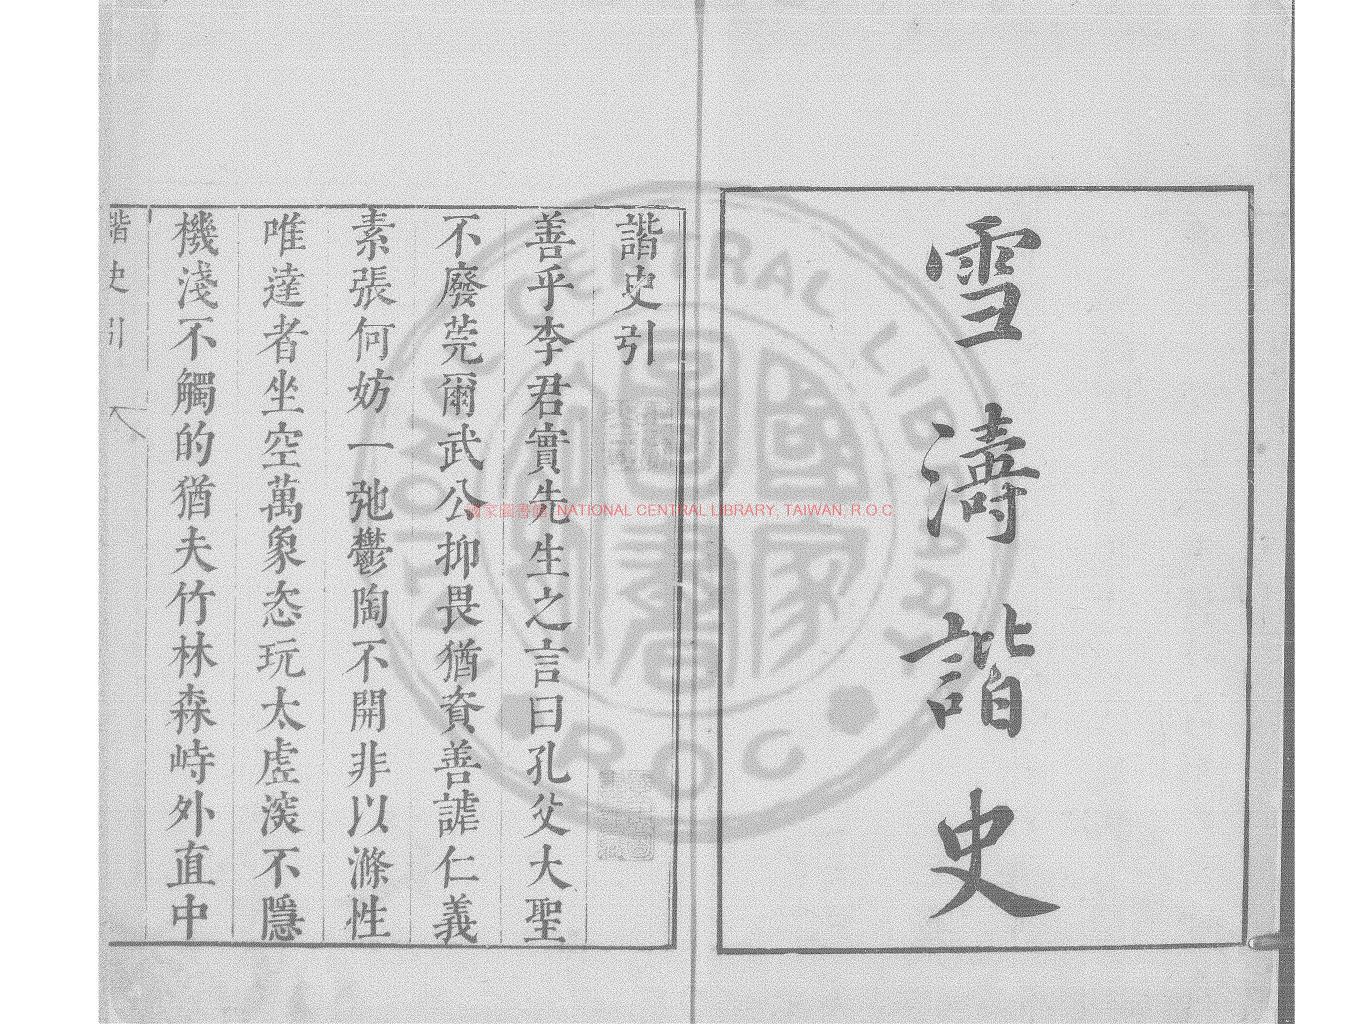 雪濤諧史
諧史引
善乎李君實先生之言曰孔父大聖
不廢莞爾武公抑畏猶資善謔仁義
素張何妨一弛鬱陶不開非以滌性
唯達者坐空萬象恣玩太虛深不隱
機淺不觸的猶夫竹林森峙外直中
諧史引
國家圖書館 NATIONAL CENTRAL LIBRARY, TAIWAN, R.O.C
NATIONAL CENTRAL LIBRARY
R O C
國家圖書